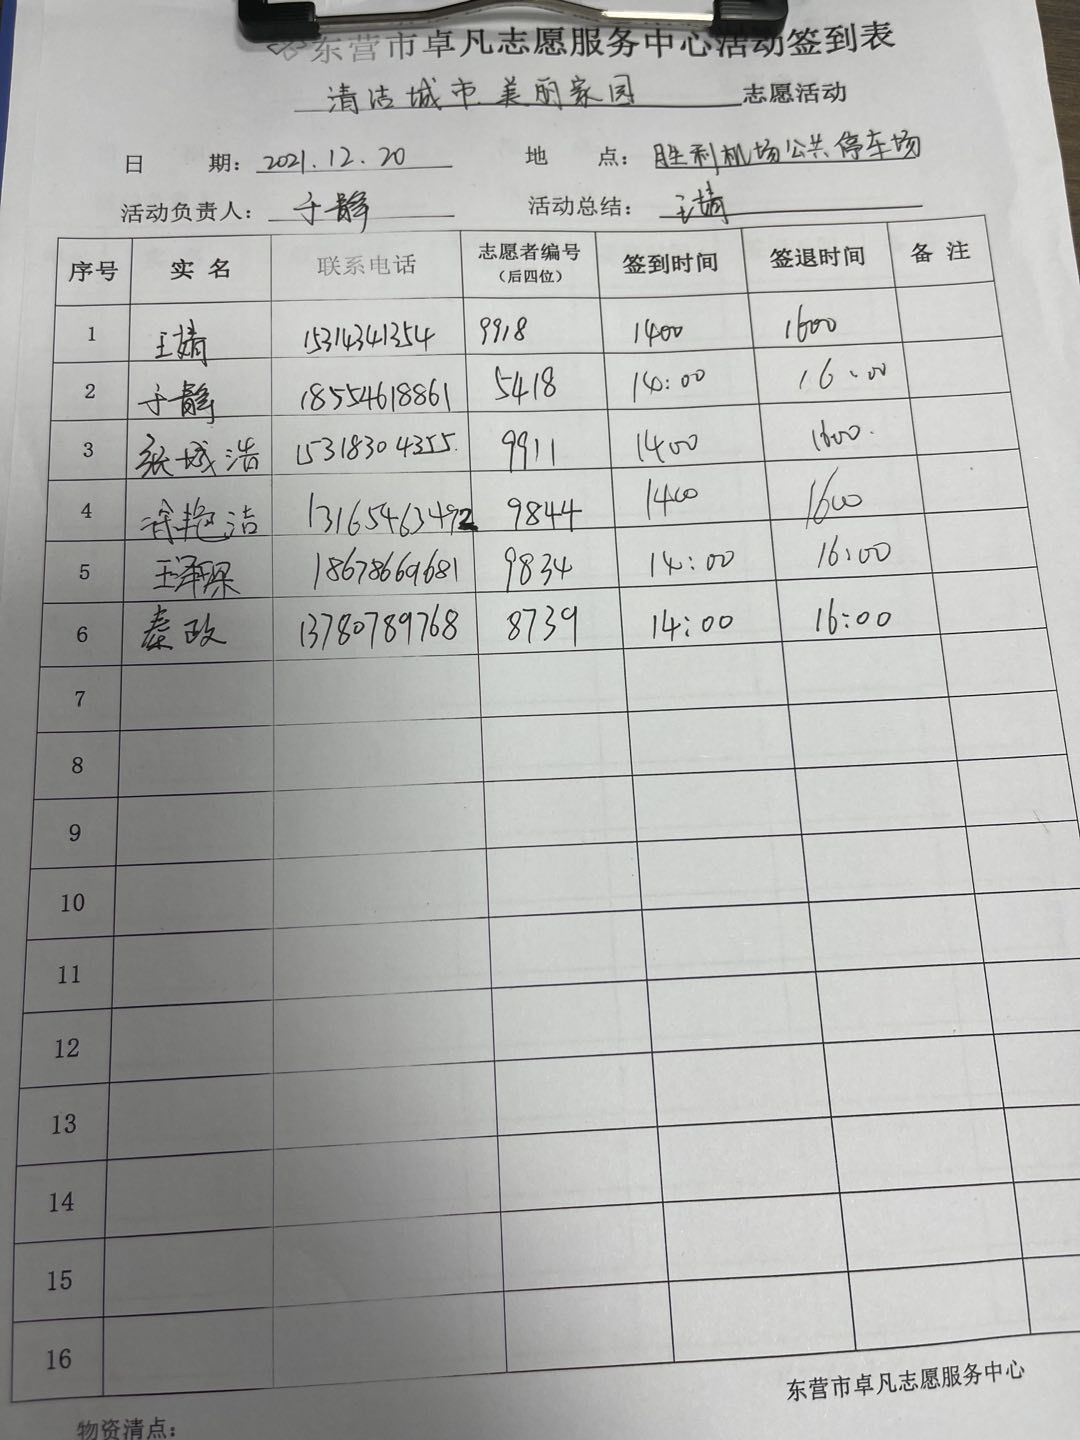 东营市卓凡志愿服务中心活动签到表
清洁城市 美丽家园 志愿活动
日 期：2021.12.20 地 点：胜利机场公共停车场
活动负责人：于静 活动总结：王婧
序号 实 名 联系电话 志愿者编号（后四位） 签到时间 签退时间 备 注
1 王婧 15314341354 9918 1400 1600
2 于静 18554618861 5418 14:00 16:00
3 张城浩 15318304355. 9911 1400 1600.
4 徐艳洁 13165463492 9844 1400 1600
5 王泽琛 18678669681 9834 14:00 16:00
6 秦政 13780789768 8739 14:00 16:00
7
8
9
10
11
12
13
14
15
16
东营市卓凡志愿服务中心
物资清点：